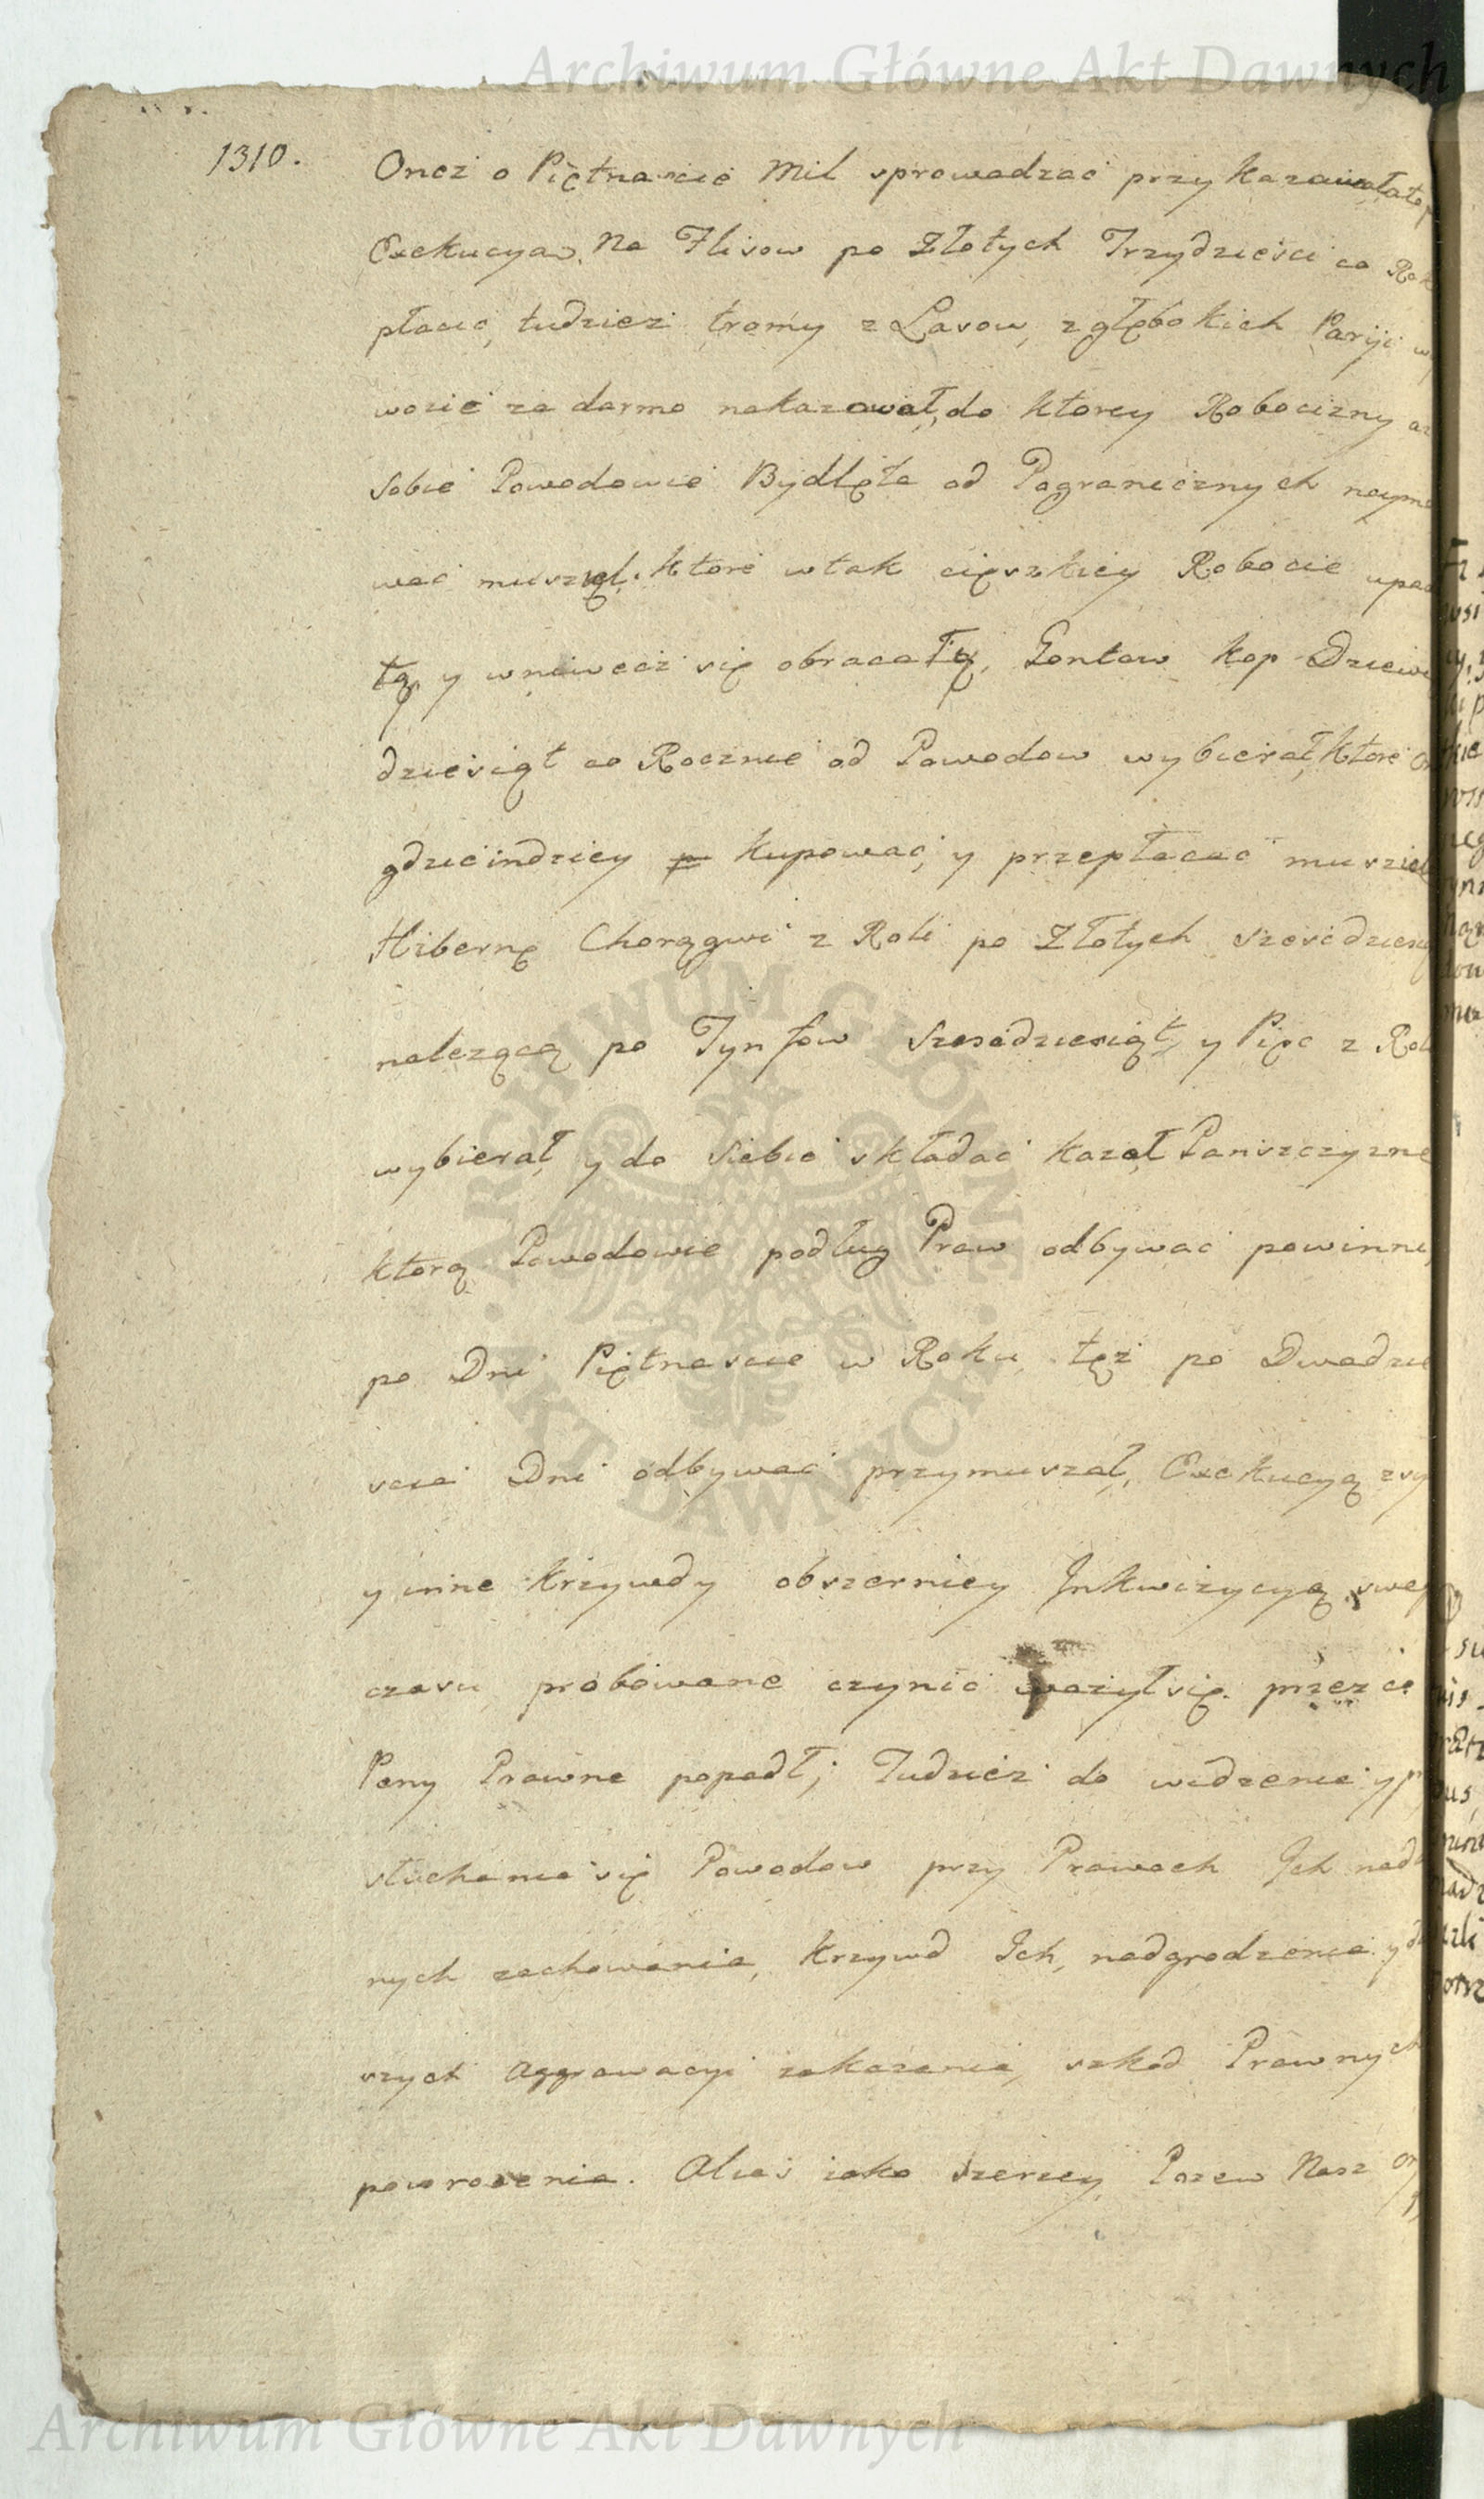 Archiwum Główne Akt Dawnych
1310.
Oneż o Piętnascie Mil sprowadzać przykazawałało
Exekucyą. Na Flisow po Złotych Trzydzieści co Rok
płacic, tudzież tramy z Lasow, z głębokich Paryi wy
wozić za darmo nakazował, do ktorey Robocizny
sobie Powodowie Bydlęta od Pogranicznych naymo
wać musięl. które w tak cięszkiey Robocie upad
łą, y wniwecz się obracałÿ, Gontow kop Dziewię
dziesiąt co Rocznie od Powodow wybierał, ktore
gdzieindziey p kupować, y przepłacać musieli
Hibernę Chorągwi z Roli po Złotych sześćdziesią
należącą po Tynfow Szesćdziesiąt, y Pięc z Roli
wybierał, y do siebie składać kazał Pańszczyznę
ktorą Powodowie podług Praw odbywać powinni,
po Dni Piętnascie w Roku, też po Dwadzie
scia Dni odbywać przymuszał, Exekucyą zsy
y inne Krzywdy obszerniey Inkwizycyą swego
czasu probowane czynić ważył się. przez co
Peny Prawne popadł; Tudzież do widzenia y p
słuchania się Powodow przy Prawach Ich nada
nych zachowania, krzywd Ich, nadgrodzenia y da
szych Aggrawacyi zakazania, szkod Prawnych
powrocenia. Alias iako szerzey Pozew Nasz
ARCHIWUM GŁÓWNE AKT DAWNYCH
Archiwum Główne Akt Dawnych